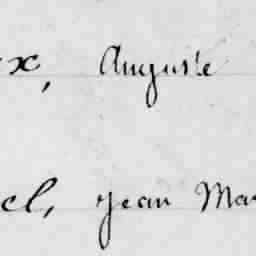 x, Auguste
el, Jean Mar